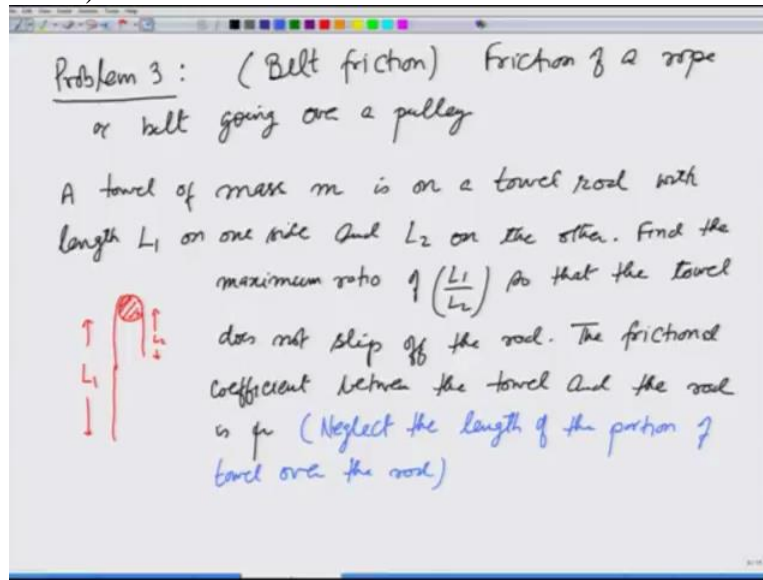 Problem 3 : (Belt friction) Friction of a rope
or belt going over a pulley
A towel of mass m is on a towel rod with
length L1 on one side and L2 on the other. Find the
maximum ratio of (L1/L2) so that the towel
does not slip off the rod. The frictional
coefficient between the towel and the rod
is μ (Neglect the length of the portion of
towel over the rod)
L1
L2